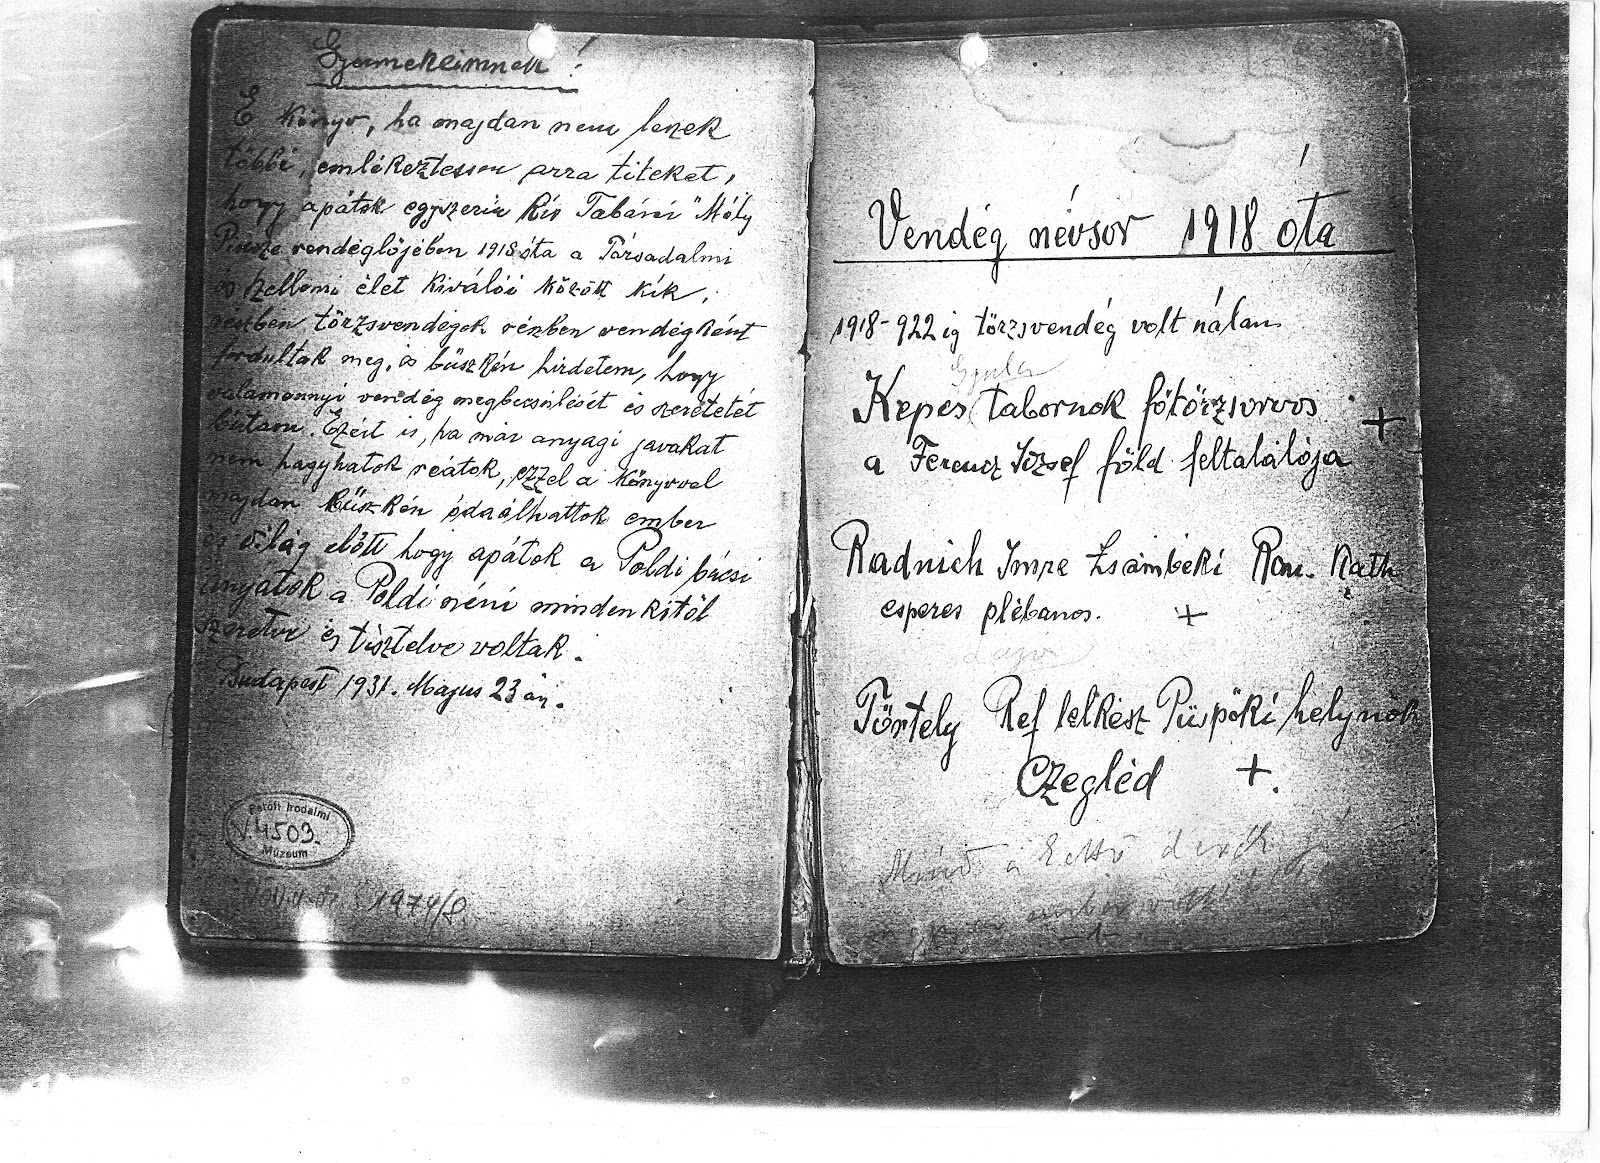 Gyermekeimnek!
E Könyv, ha majdan nem leszek
többé, emlékeztessen arra titeket,
hogy apátok egyszerü Kis Tabáni "Mély
Pincze vendéglőjében 1918 óta a Társadalmi
és szellemi élet Kiválói között kik,
részben törzsvendégek részben vendégként
fordultak meg, és büszkén hirdetem, hogy
valamennyi vendég megbecsülését és szeretetét
birtam. Ezért is, ha már anyagi javakat
nem hagyhatok reátok, ezzel a Könyvvel
majdan Büszkén odaálhattok ember
és világ előtt hogy apátok a Poldi bácsi
anyátok a Poldi néni mindenkitöl
szeretve és tisztelve voltak.
Budapest 1931. Majus 23 án.
Petőfi Irodalmi
V.4503.
Múzeum
1974/8
Vendég névsor 1918 óta
1918-922 ig törzsvendég volt nálam
Gyula
Kepes tabornok főtörzsorvos +
a Ferencz József föld feltalálója
Radnich Imre Zsámbéki Rom. Kath
esperes plébános. +
Lajos
Törtely Ref lelkész Püspöki helynök
Czegléd +.
Mind a Kettő derék jó
ember volt
-1-